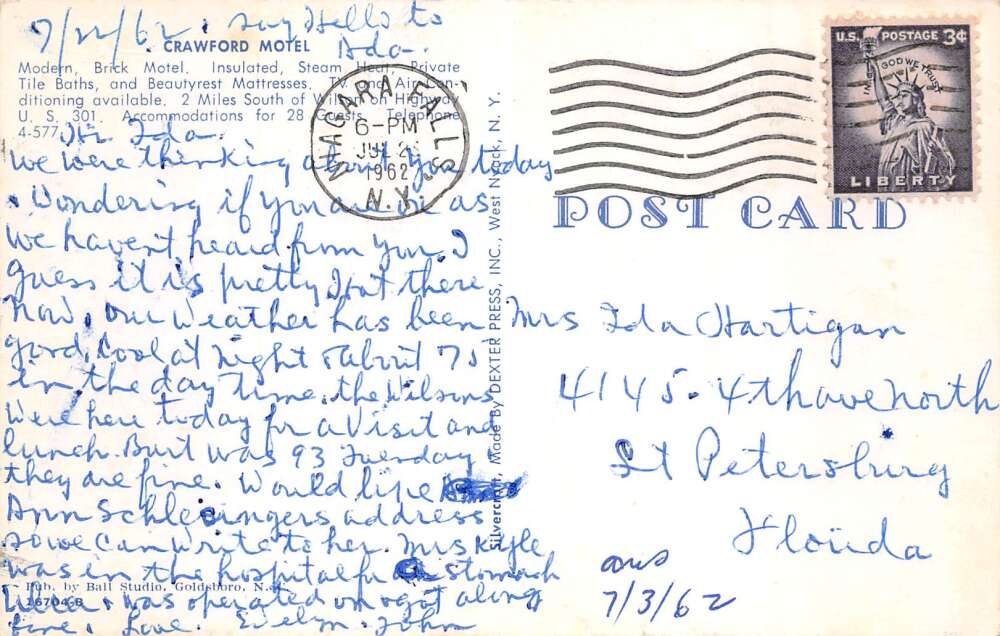 7/22/62. Say Hello to
Ada.
CRAWFORD MOTEL
Modern, Brick Motel. Insulated, Steam Heat, Private
Tile Baths, and Beautyrest Mattresses. TV Air
ditioning available. 2 Miles South of on Highway
U. S. 301. Accommodations for 28 Guests. Telephone
4-577
Hi Ida.
We were thinking about you today
. Wondering if you are as
we haven't heard from you. I
guess it is pretty Hot there
now, our weather has been
good, Cool at night & about 75
in the day time. the Wilsons
were here today for a Visit and
lunch. Burt was 93 Tuesday
they are fine. Would like
Ann Schlesingers address
so we can write to her. Mrs Kyle
was in the hospital for a stomach
Ulcer. was operated on & got along
fine. Love. Evelyn. John
Pub. by Ball Studio, Goldsboro, N.
26704-B
Silvercraft Made By DEXTER PRESS, INC., West Nyack, N. Y.
NIAGARA FALLS
6-PM
JUL 2
1962
N.Y.
U.S. POSTAGE 3¢
IN GOD WE TRUST
LIBERTY
POST CARD
Mrs Ida Hartigan
4145. 4th ave North
St Petersburg
Florida
ans
7/3/62